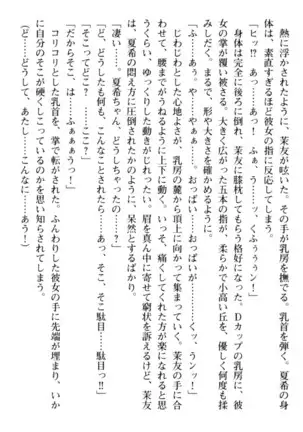 熱に浮かされたように、茉友が呟いた。その手が乳房を撫でる。乳首を弾く。夏希の身
体は、素直すぎるほど彼女の指に反応してしまう。
「ヒッ!?　あっ……あっ！　ふぁ、う……くふぅぅン！」
身体は完全に後ろに倒れ、茉友に膝枕してもらう格好になった。Ｄカップの乳房に、彼
女の掌が覆い被さる。大きく広がった五本の指が、柔らかで小高い丘を、優しく何度も揉
みほぐす。まるで、形や大きさを確かめるように。
「ふぁ、あっ、やぁ……。おっぱい……おっぱいが……くっ、ウンッ！」
じわじわとした心地よさが、乳房の麓から頂上に向かって集まっていく。茉友の手に合
わせて、腰までがうねるように上下に動く。いっそ、痛くしてくれた方が楽になれると思
うくらい、ゆっくりした動きがじれったい。眉を真ん中に寄せて窮状を訴えるけど、茉友
は、夏希の悶え方に圧倒されたかのように、呆然とするばかり。
「凄い……。夏希ちゃん、どうしちゃったの……？」
「ど、どうしても何も、こんなことされたら……あっ、そこ、そこ駄目……駄目っ!!」
「そこってどこ……ここ？」
「だからそこは……ふぁぁぁうっ！」
コリコリとした乳首を、掌で転がされた。ふんわりした彼女の手に先端が埋まり、いか
に自分のそこが硬くしこっているのかを思い知らされてしまう。
（ど……どうして、あたし……こんなに……あう！）